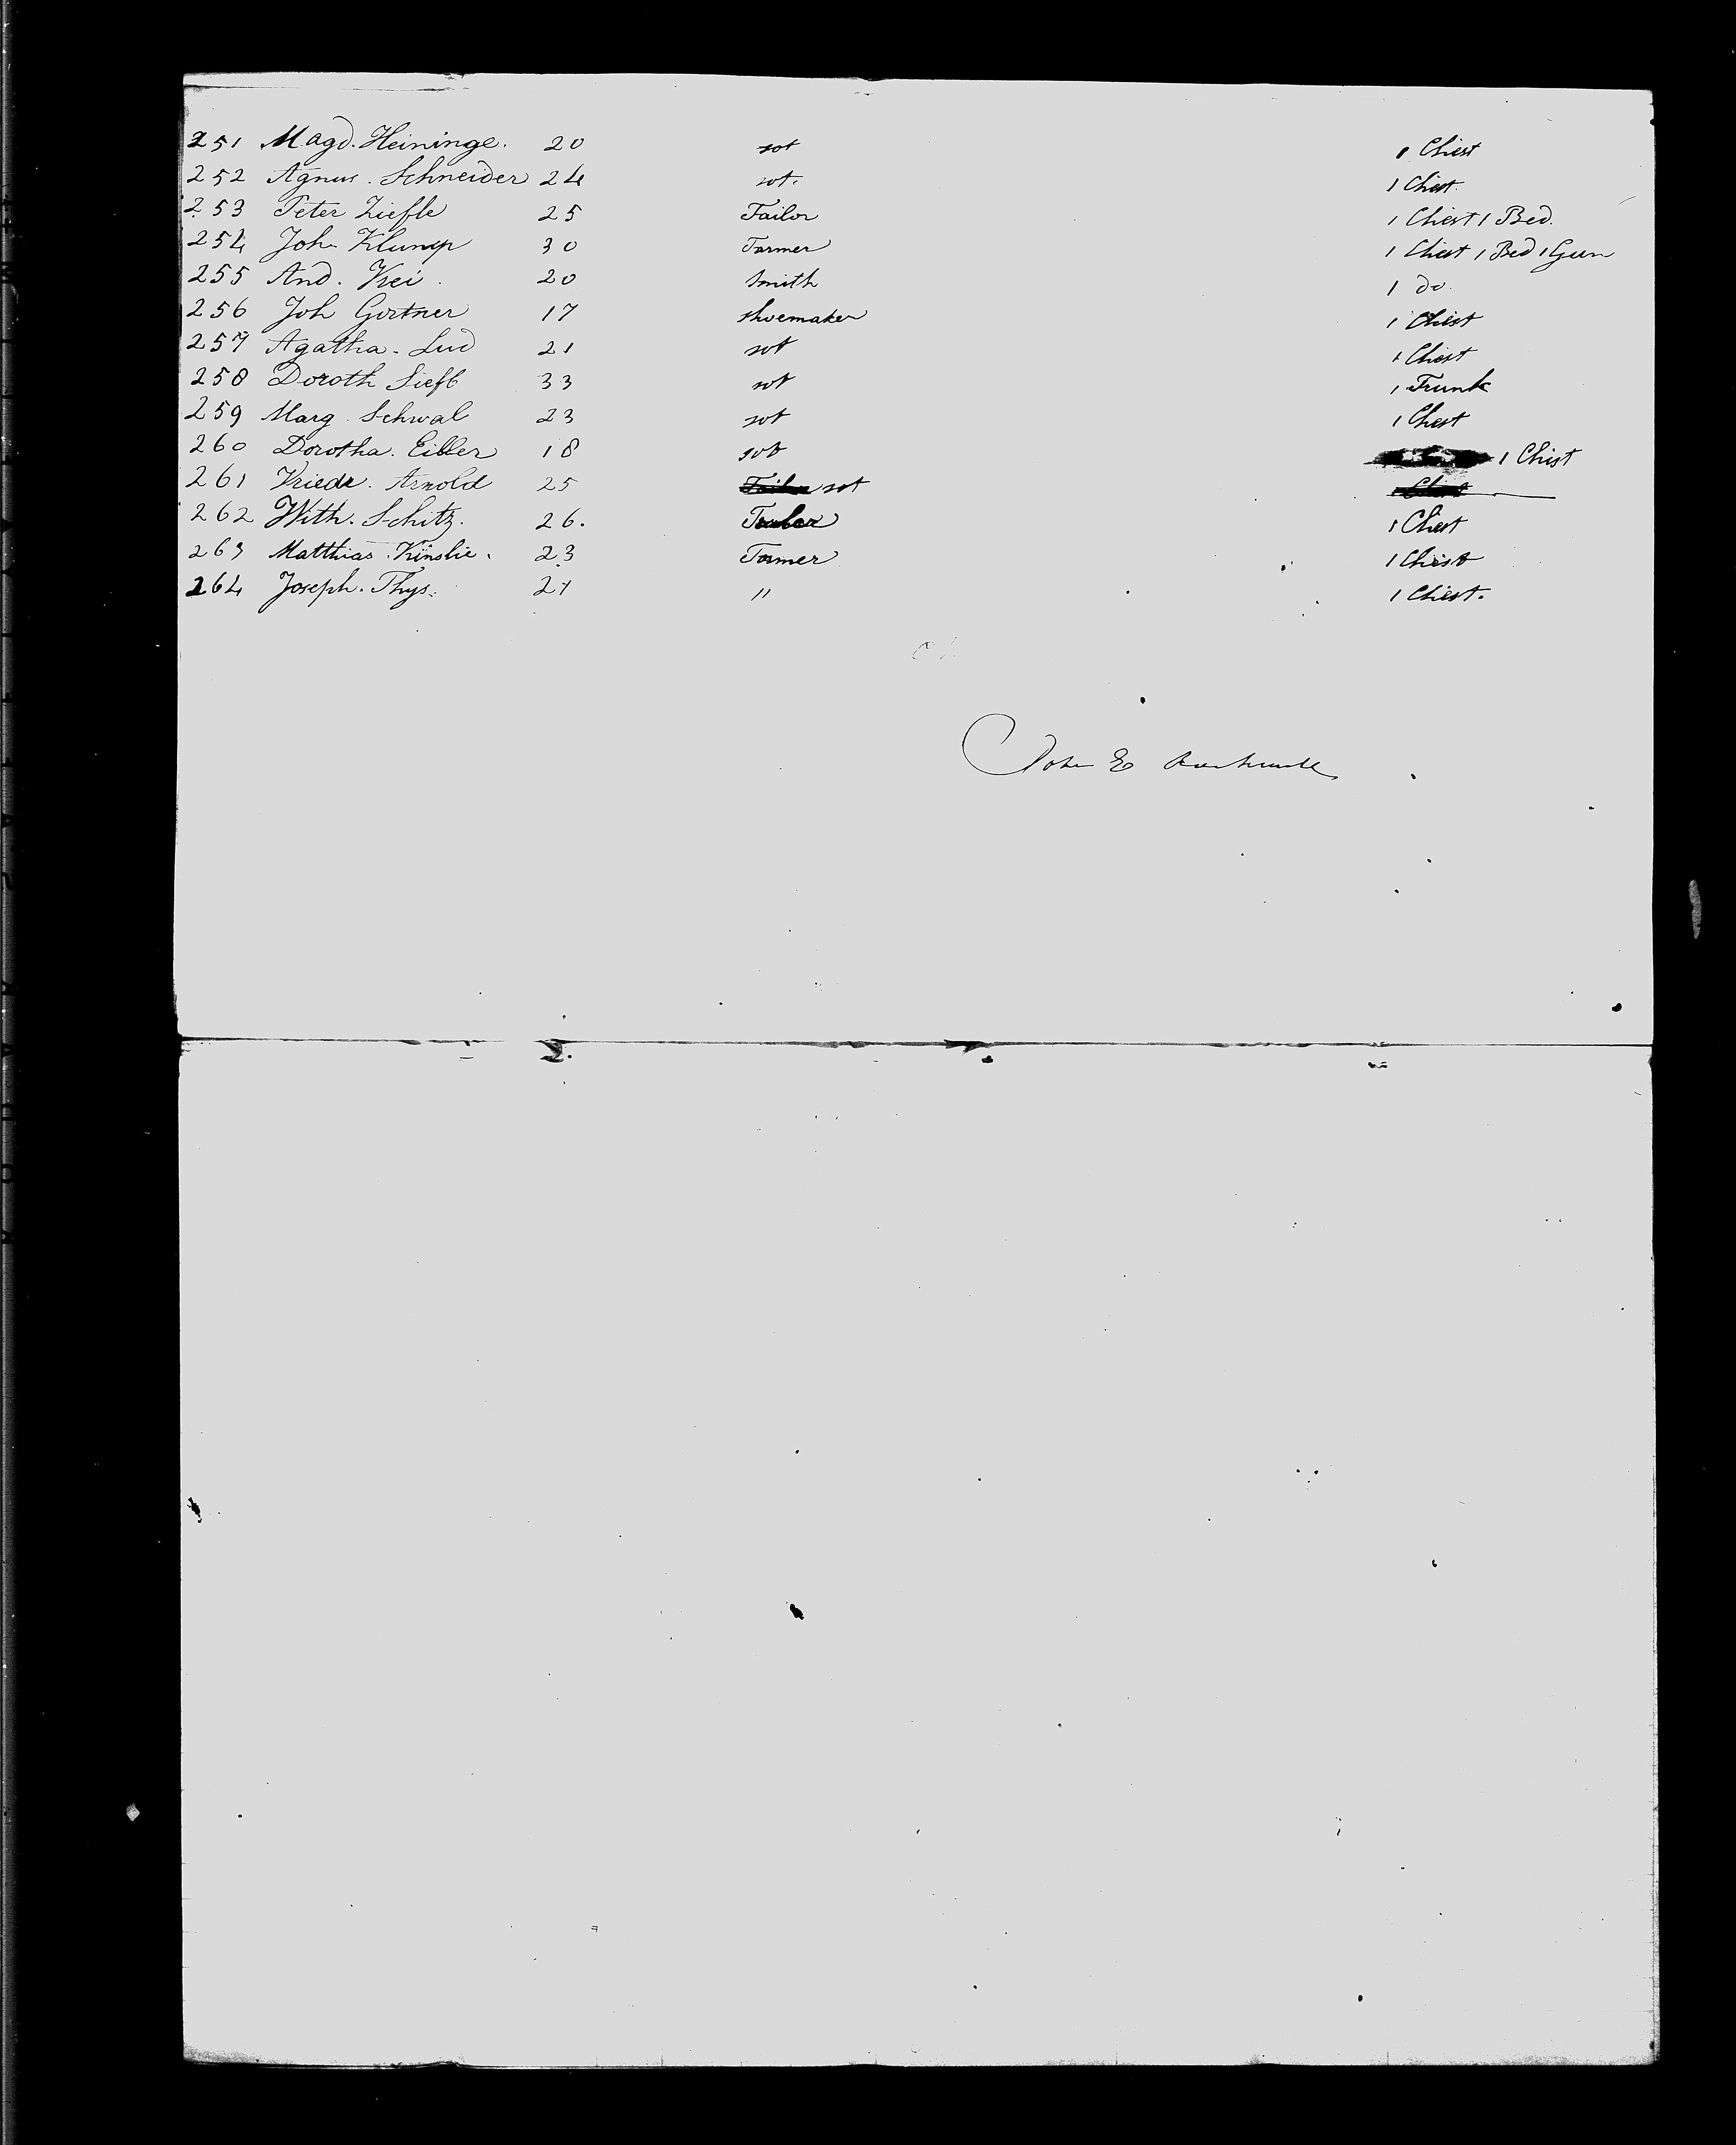 251 Magd. Heininge. 20 sot 1 Chest
252 Agnus. Schneider 24 sot. 1 Chest.
253 Peter Ziefle 25 Tailor 1 Chest 1 Bed.
254 Joh Klump 30 Farmer 1 Chest 1 Bed 1 Gun
255 And. Krei. 20 Smith 1 do.
256 Joh Gortner 17 shoemaker 1 Chest
257 Agatha. Lud 21 sot 1 Chest
258 Doroth Siefb 33 sot 1 Trunk
259 Marg. Schwal 23 sot 1 Chest
260 Dorotha. Eibler 18 sot 1 Chist
261 Friedr. Arnold 25 sot
262 With. Schitz. 26. 1 Chest
263 Matthias. Kinslie. 23 Farmer 1 Chest
264 Joseph. Thys. 21 " 1 Chest.
John E